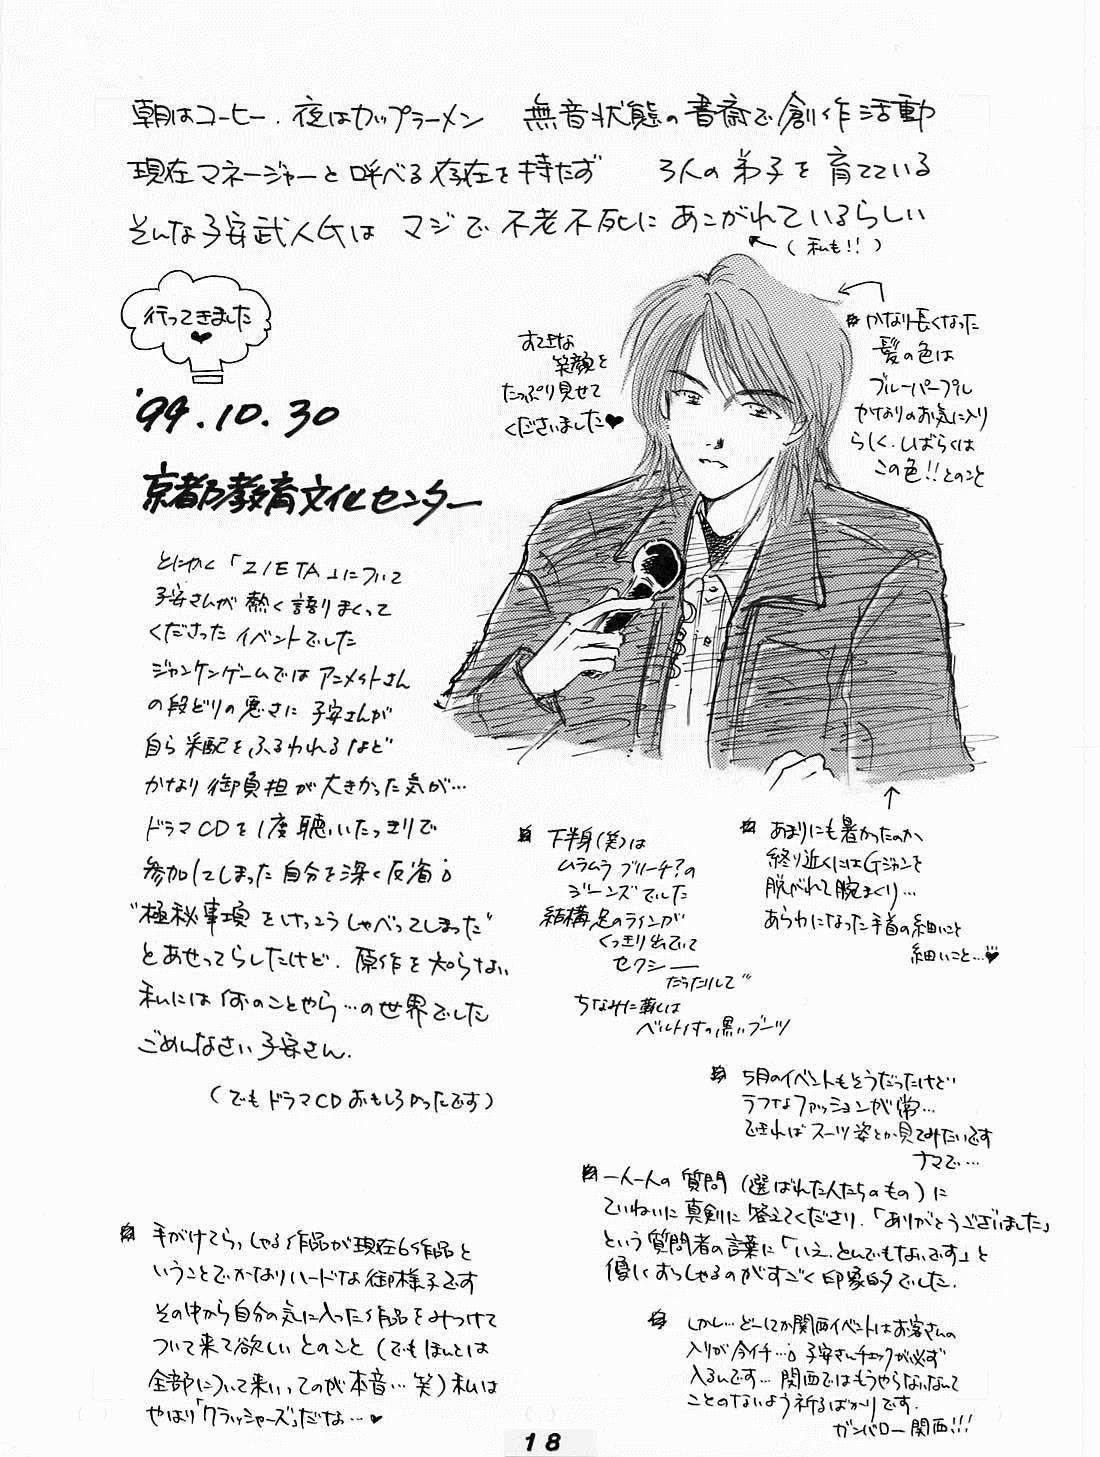 朝はコーヒー、夜はカップラーメン　無音状態の書斎で創作活動
現在マネージャーと呼べる存在を持たず　3人の弟子を育てている
そんな子安武人氏は マジで不老不死に あこがれているらしい
(私も!!)
行ってきました
'94.10.30
京都教育文化センター
すてきな
笑顔を
たっぷり見せて
くださいました
かなり長くなった
髪の色は
ブルーパープル
かなりのお気に入り
らしく、しばらくは
この色!!とのこと
とにかく「ZIETA」について
子安さんが熱く語りまくって
くださったイベントでした
ジャンケンゲームではアニメイトさん
の段どりの悪さに子安さんが
自ら采配をふるわれるなど
かなり御負担が大きかった気が…
ドラマCDを1度聴いたっきりで
参加してしまった自分を深く反省
"極秘事項をけっこうしゃべってしまった"
とあせってらしたけど、原作を知らない
私には何のことやら…の世界でした
ごめんなさい子安さん.
(でもドラマCDおもしろかったです)
下半身(笑)は
ムラムラブリーチ?の
ジーンズでした
結構足のラインが
くっきり出ていて
セクシー
だったりして
ちなみに靴は
ベルト付の黒いブーツ
あまりにも暑かったのか
終り近くにはGジャンを
脱がれて腕まくり…
あらわになった手首の細いこと
細いこと…
5月のイベントもそうだったけど
ラフなファッションが常…
できればスーツ姿とか見てみたいです
ナマで…
一人一人の質問(選ばれた人たちのもの)に
ていねいに真剣に答えてくださり、「ありがとうございました」
という質問者の言葉に「いえ、とんでもないです」と
優しくおっしゃるのがすごく印象的でした.
手がけてらっしゃる作品が現在6作品と
いうことでかなりハードな御様子です
その中から自分の気に入った作品をみつけて
ついて来て欲しいとのこと(でもほんとは
全部について来いってのが本音…笑)私は
やはり「クラッシャーズ」だな…
しかし…どーしてか関西イベントはお客さんの
入りが今イチ… 子安さんチェックが必ず
入るんです…関西ではもうやらないなんて
ことのないよう祈るばかりです.
ガンバロー関西!!!
18